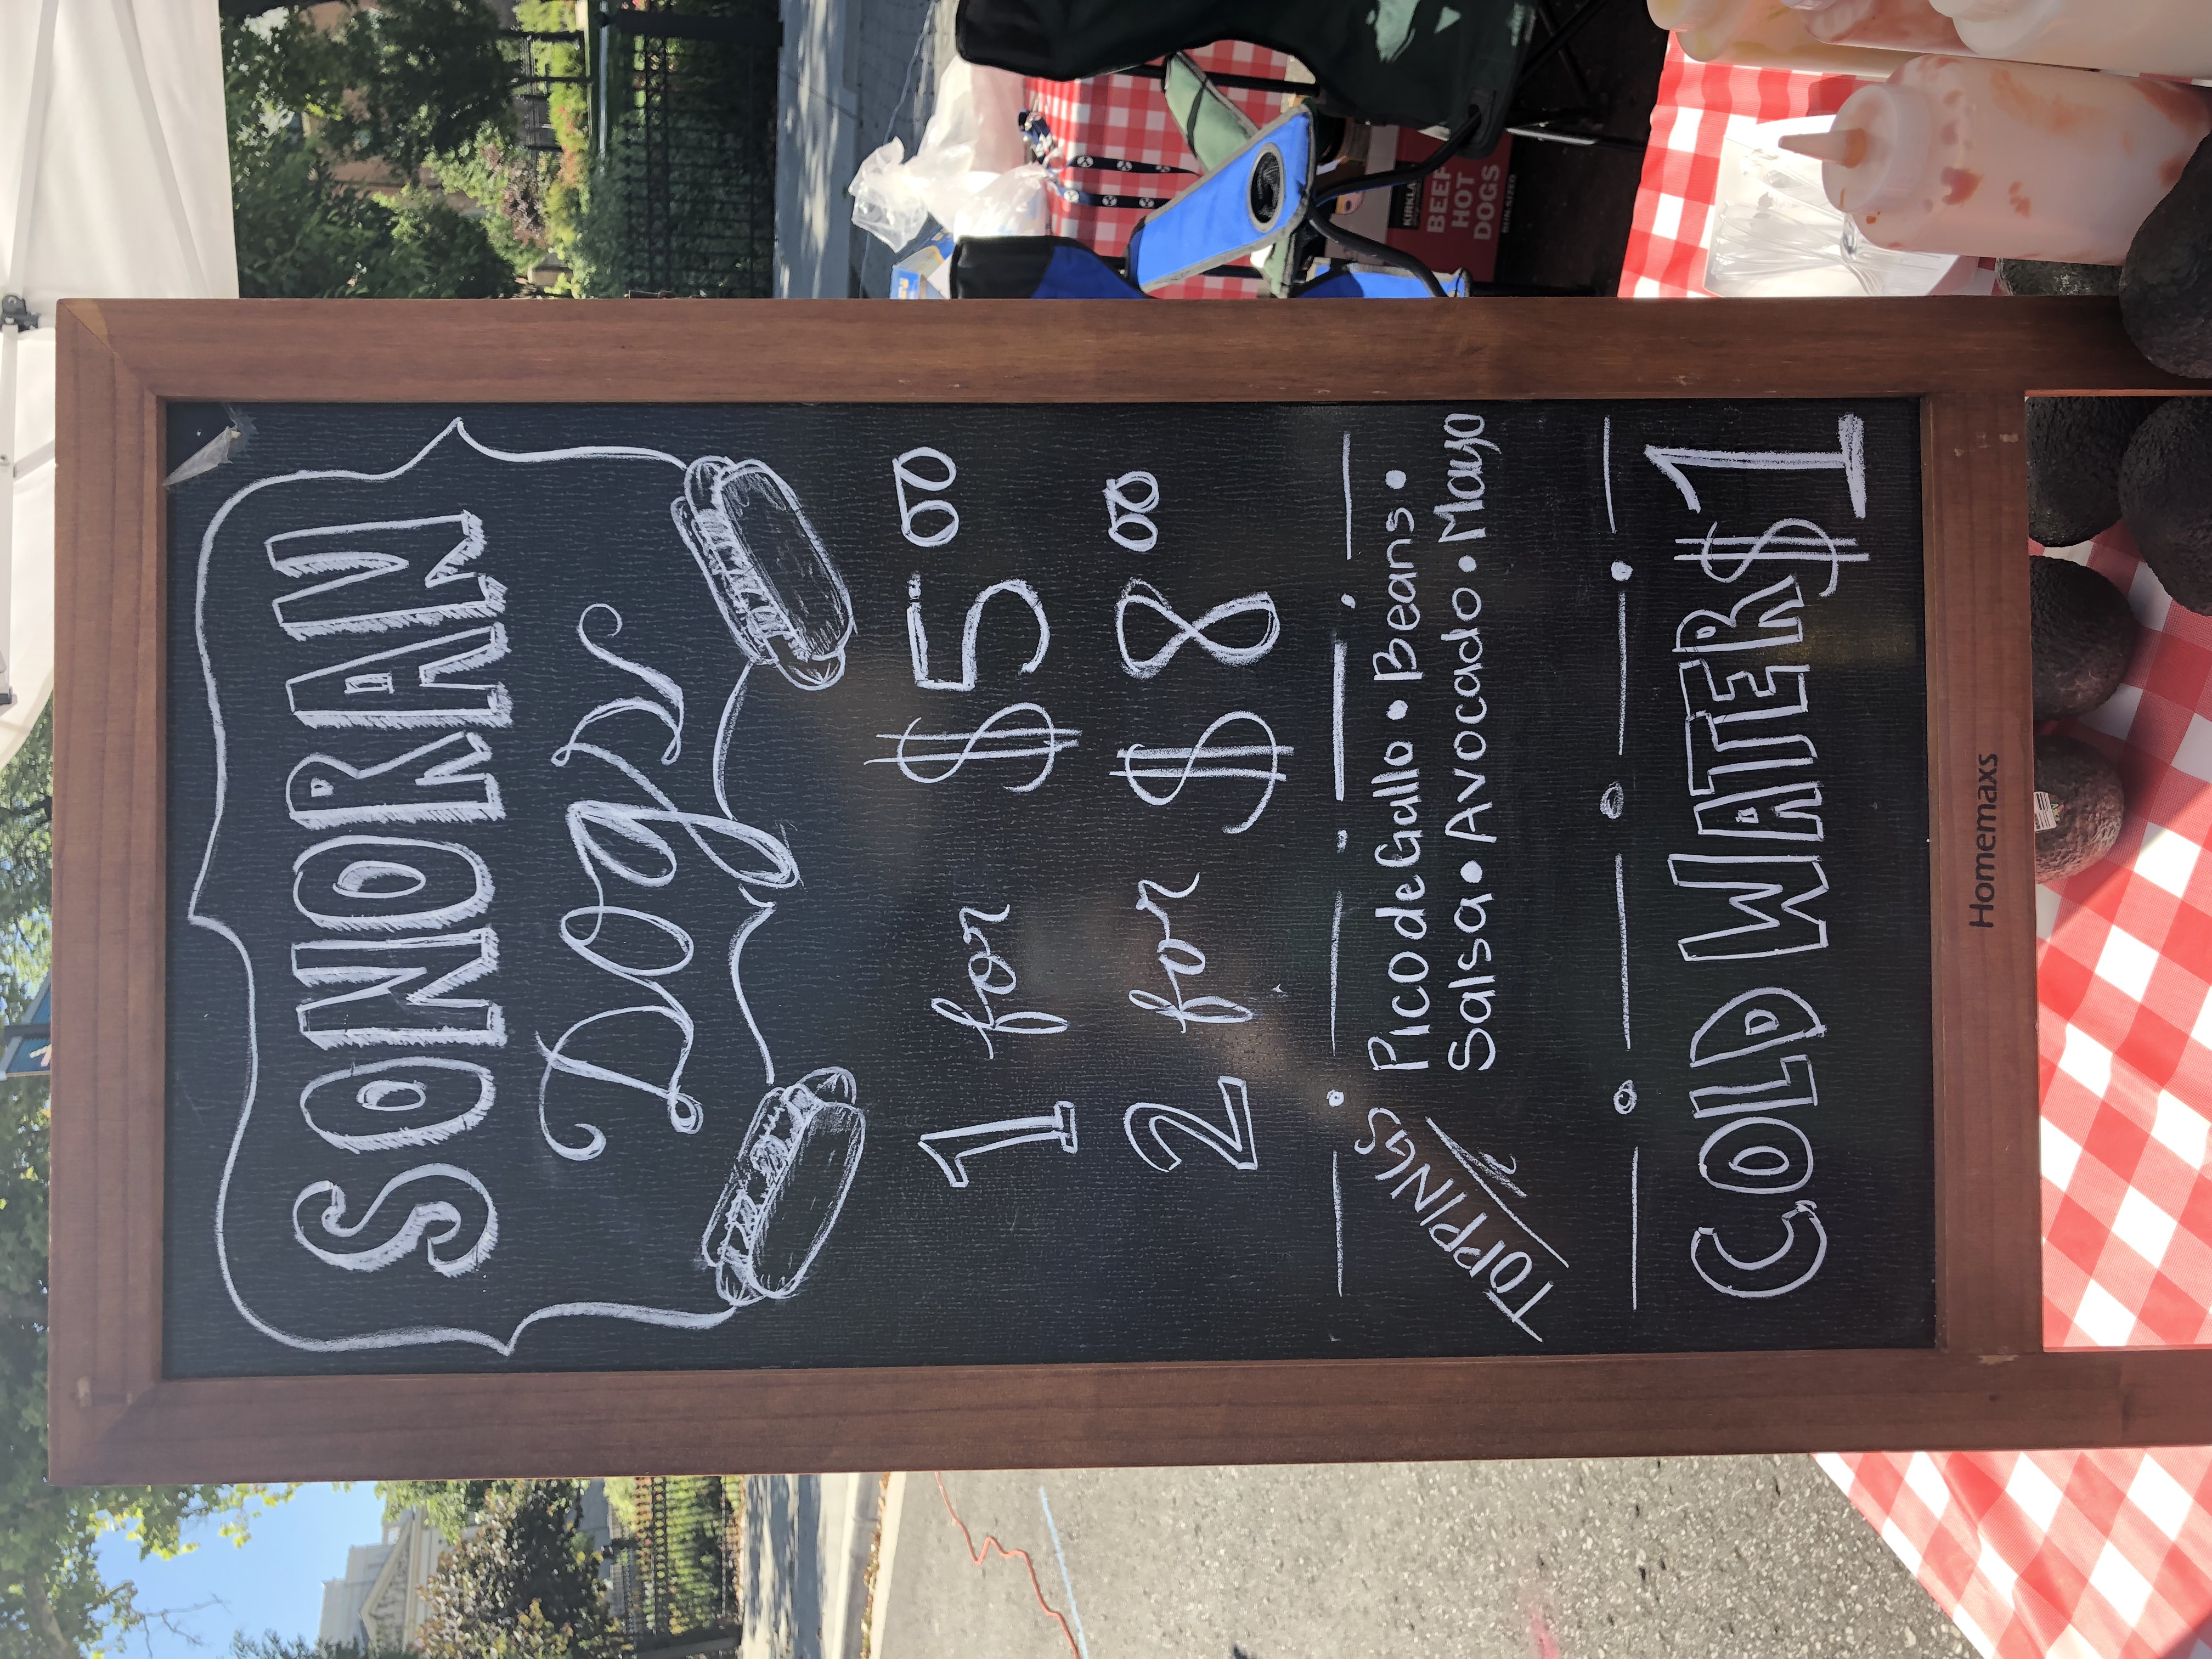 SONORAN
Dogs
1 for $5⁰⁰
2 for $8⁰⁰
TOPPINGS
Pico de Gallo • Beans •
Salsa • Avocado • Mayo
COLD WATER $1
Homemaxs
BEEF
HOT
DOGS
BUN-SIZED